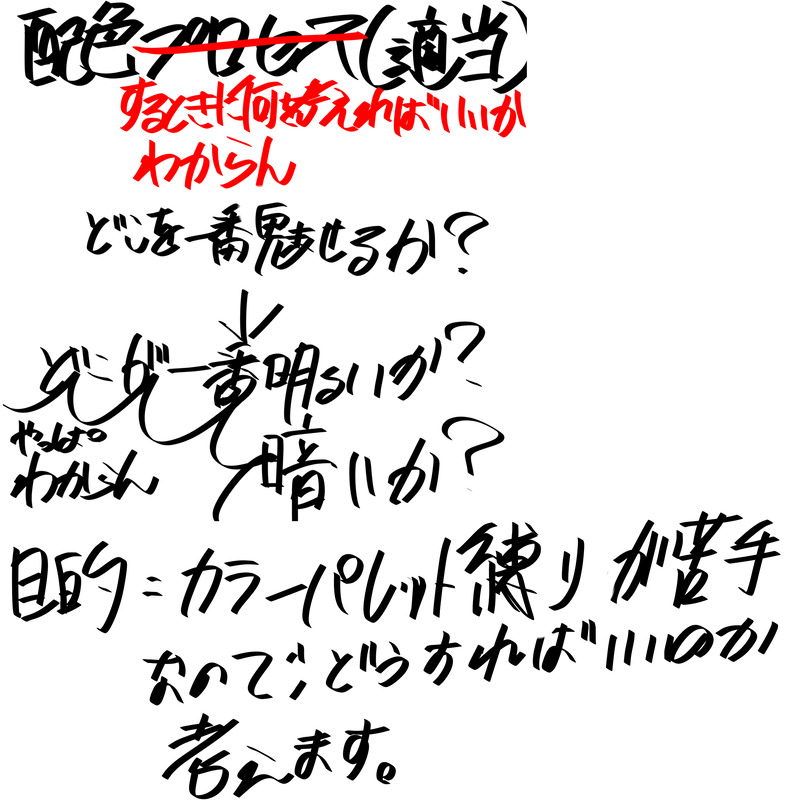 配色プロセス(適当)
するときに何を考えればいいか
わからん
どこを一番魅せるか?
どこが一番明るいか?
やっぱ
わからん
暗いか?
目的=カラーパレット練りが苦手
なので、どうすればいいのか
考えます。